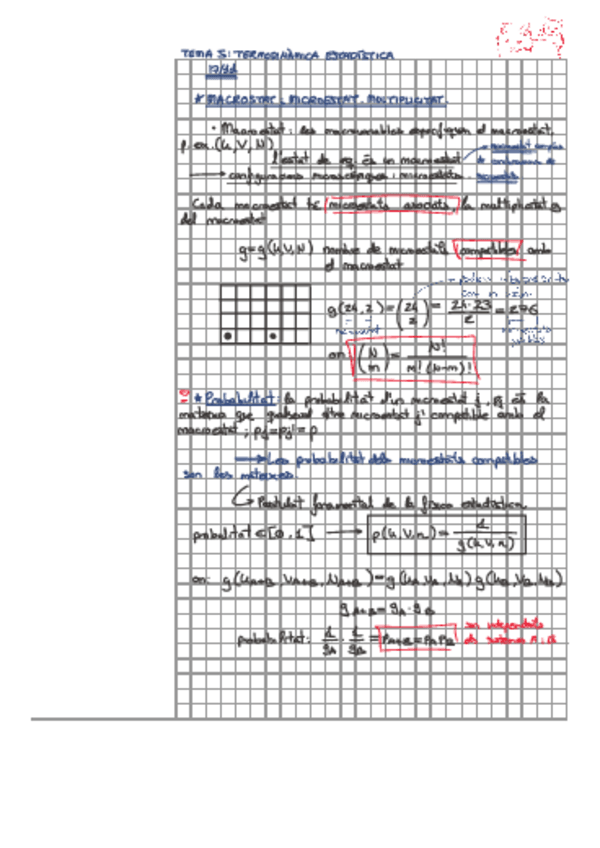 TEMA 5: TERMODINÀMICA ESTADÍSTICA
* MACROSTAT, MICROESTAT. MULTIPLICITAT.
• Macroestat: les macrovariables especifiquen el macroestat,
p. ex. (U, V, N)
l'estat de eq. és un macroestat
→ configuracions microscòpiques: microestats.
Cada macroestat té microestats associats, la multiplicitat g
del macroestat
g=g(U,V,N) nombre de microestats compatibles amb
el macroestat
g(24,2)=(24 2)= 24·23/2 =276
on: (N m)= N!/m!(N-m)!
* Probabilitat: la probabilitat d'un microestat j, pj és la
mateixa que qualsevol altre microestat j' compatible amb el
macroestat; pj=pj'=p
→ Les probabilitats dels microestats compatibles
són les mateixes.
Postulat fonamental de la física estadística
probabilitat ∈[0,1] → p(U,V,N)= 1/g(U,V,N)
on: g(UA+B, VA+B, NA+B)=g(UA,VA,NA)g(UB,VB,NB)
gA+B=gA·gB
probabilitat: 1/gA · 1/gB = PA+B=PAPB
són independents
els sistemes A i B